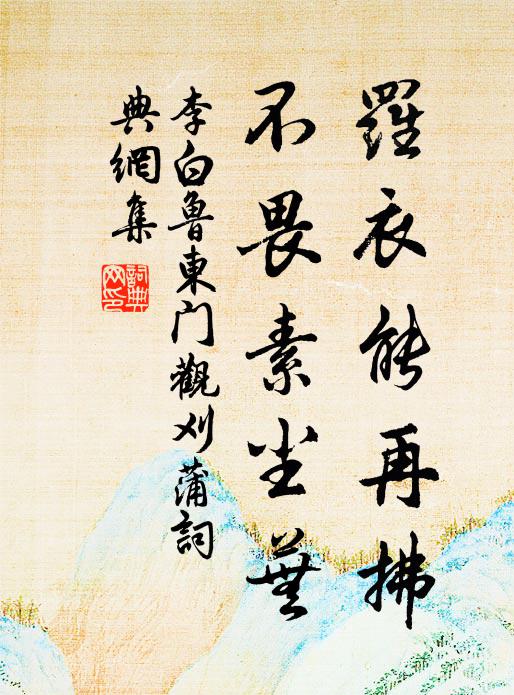 羅衣能再拂
不畏素尘蕪
李白魯東门觀刈蒲詞
典網集
詞典网印